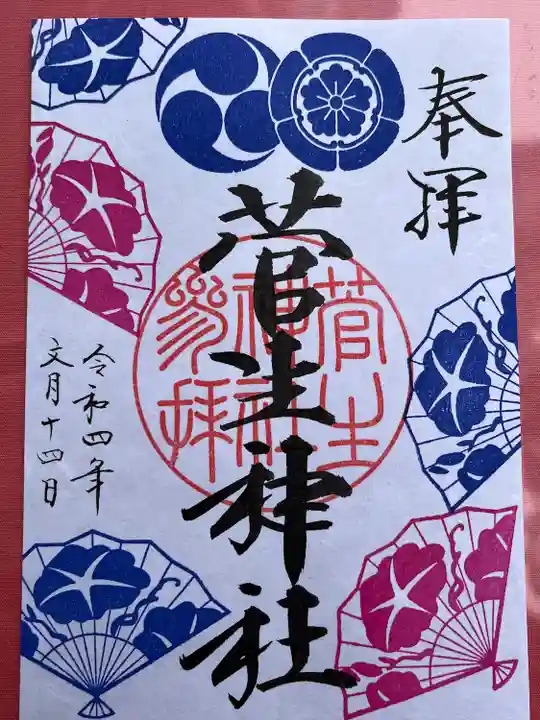 奉拝
菅生神社
菅生神社参拝
令和四年
文月十四日